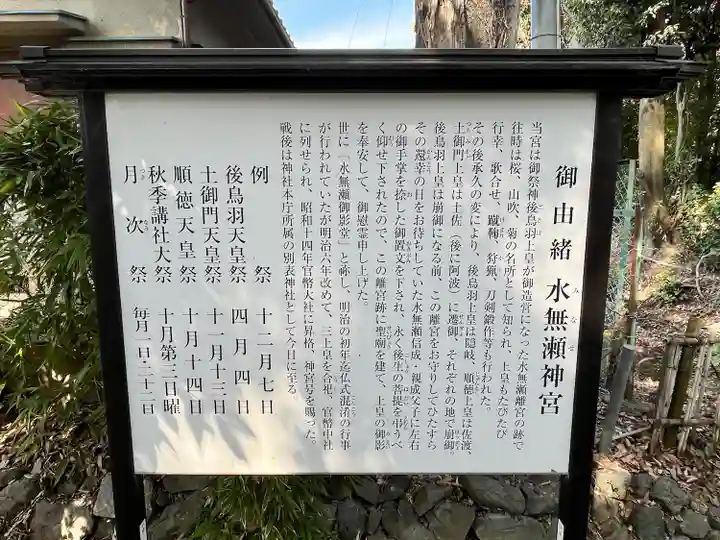 御由緒 水無瀬神宮
みなせ
当宮は御祭神後鳥羽上皇が御造営になった水無瀬離宮の跡で
往時は桜、山吹、菊の名所として知られ、上皇もたびたび
行幸、歌合せ、蹴鞠、狩猟、刀剣鍛作等も行われた。
その後承久の変により、後鳥羽上皇は隠岐、順徳上皇は佐渡、
土御門上皇は土佐（後に阿波）に遷御、それぞれの地で崩御
後鳥羽上皇は崩御になる前、この離宮をお守りしてひたすら
その還幸の日をお待ちしていた水無瀬信成、親成父子に左右
の御手掌を捺した御置文を下され、永く後生の菩提を弔うべ
く仰せ下されたので、この離宮跡に聖廟を建て、上皇の御影
を奉安して、御慰霊申し上げた。
世に「水無瀬御影堂」と称し、明治の初年迄仏式混淆の行事
が行われていたが明治六年改めて、三上皇を合祀、官幣中社
に列せられ、昭和十四年官幣大社に昇格、神宮号を賜った。
戦後は神社本庁所属の別表神社として今日に至る。
例祭 十二月七日
後鳥羽天皇祭 四月四日
土御門天皇祭 十一月十三日
順徳天皇祭 十月十四日
秋季講社大祭 十月第三日曜
月次祭 毎月一日・二十二日